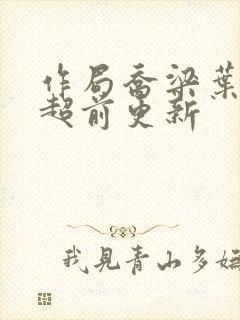 作局乔梁叶
超前更新
我見青山多嫵